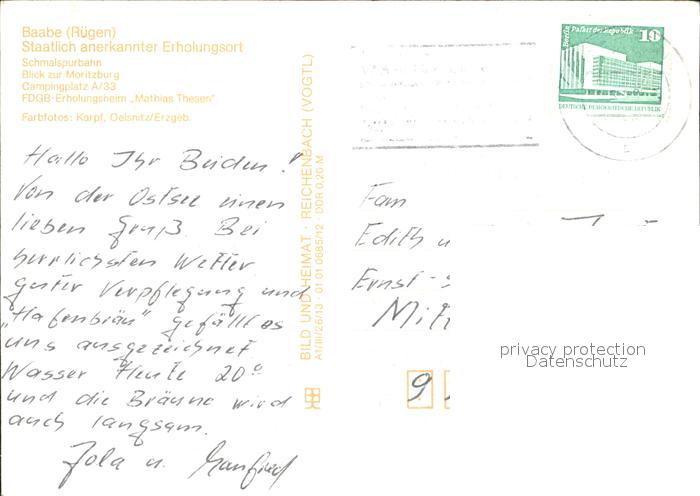 Baabe (Rügen)
Staatlich anerkannter Erholungsort
Schmalspurbahn
Blick zur Moritzburg
Campingplatz A/33
FDGB-Erholungsheim „Mathias Thesen"
Farbfotos: Karpf, Oelsnitz/Erzgeb.
Hallo Ihr Beiden!
Von der Ostsee einen
lieben Gruß. Bei
herrlichsten Wetter
guter Verpflegung und
„Hafenbräu" gefällt es
uns ausgezeichnet
Wasser Heute 20°
und die Bräune wird
auch langsam.
Jola u. Manfred
BILD UND HEIMAT · REICHENBACH (VOGTL)
A1/III/26/13 · 01 01 0685/12 · DDR 0,20 M
Berlin Palast der Republik 10
DEUTSCHE DEMOKRATISCHE REPUBLIK
Fam
Edith u
Ernst-
9
privacy protection
Datenschutz